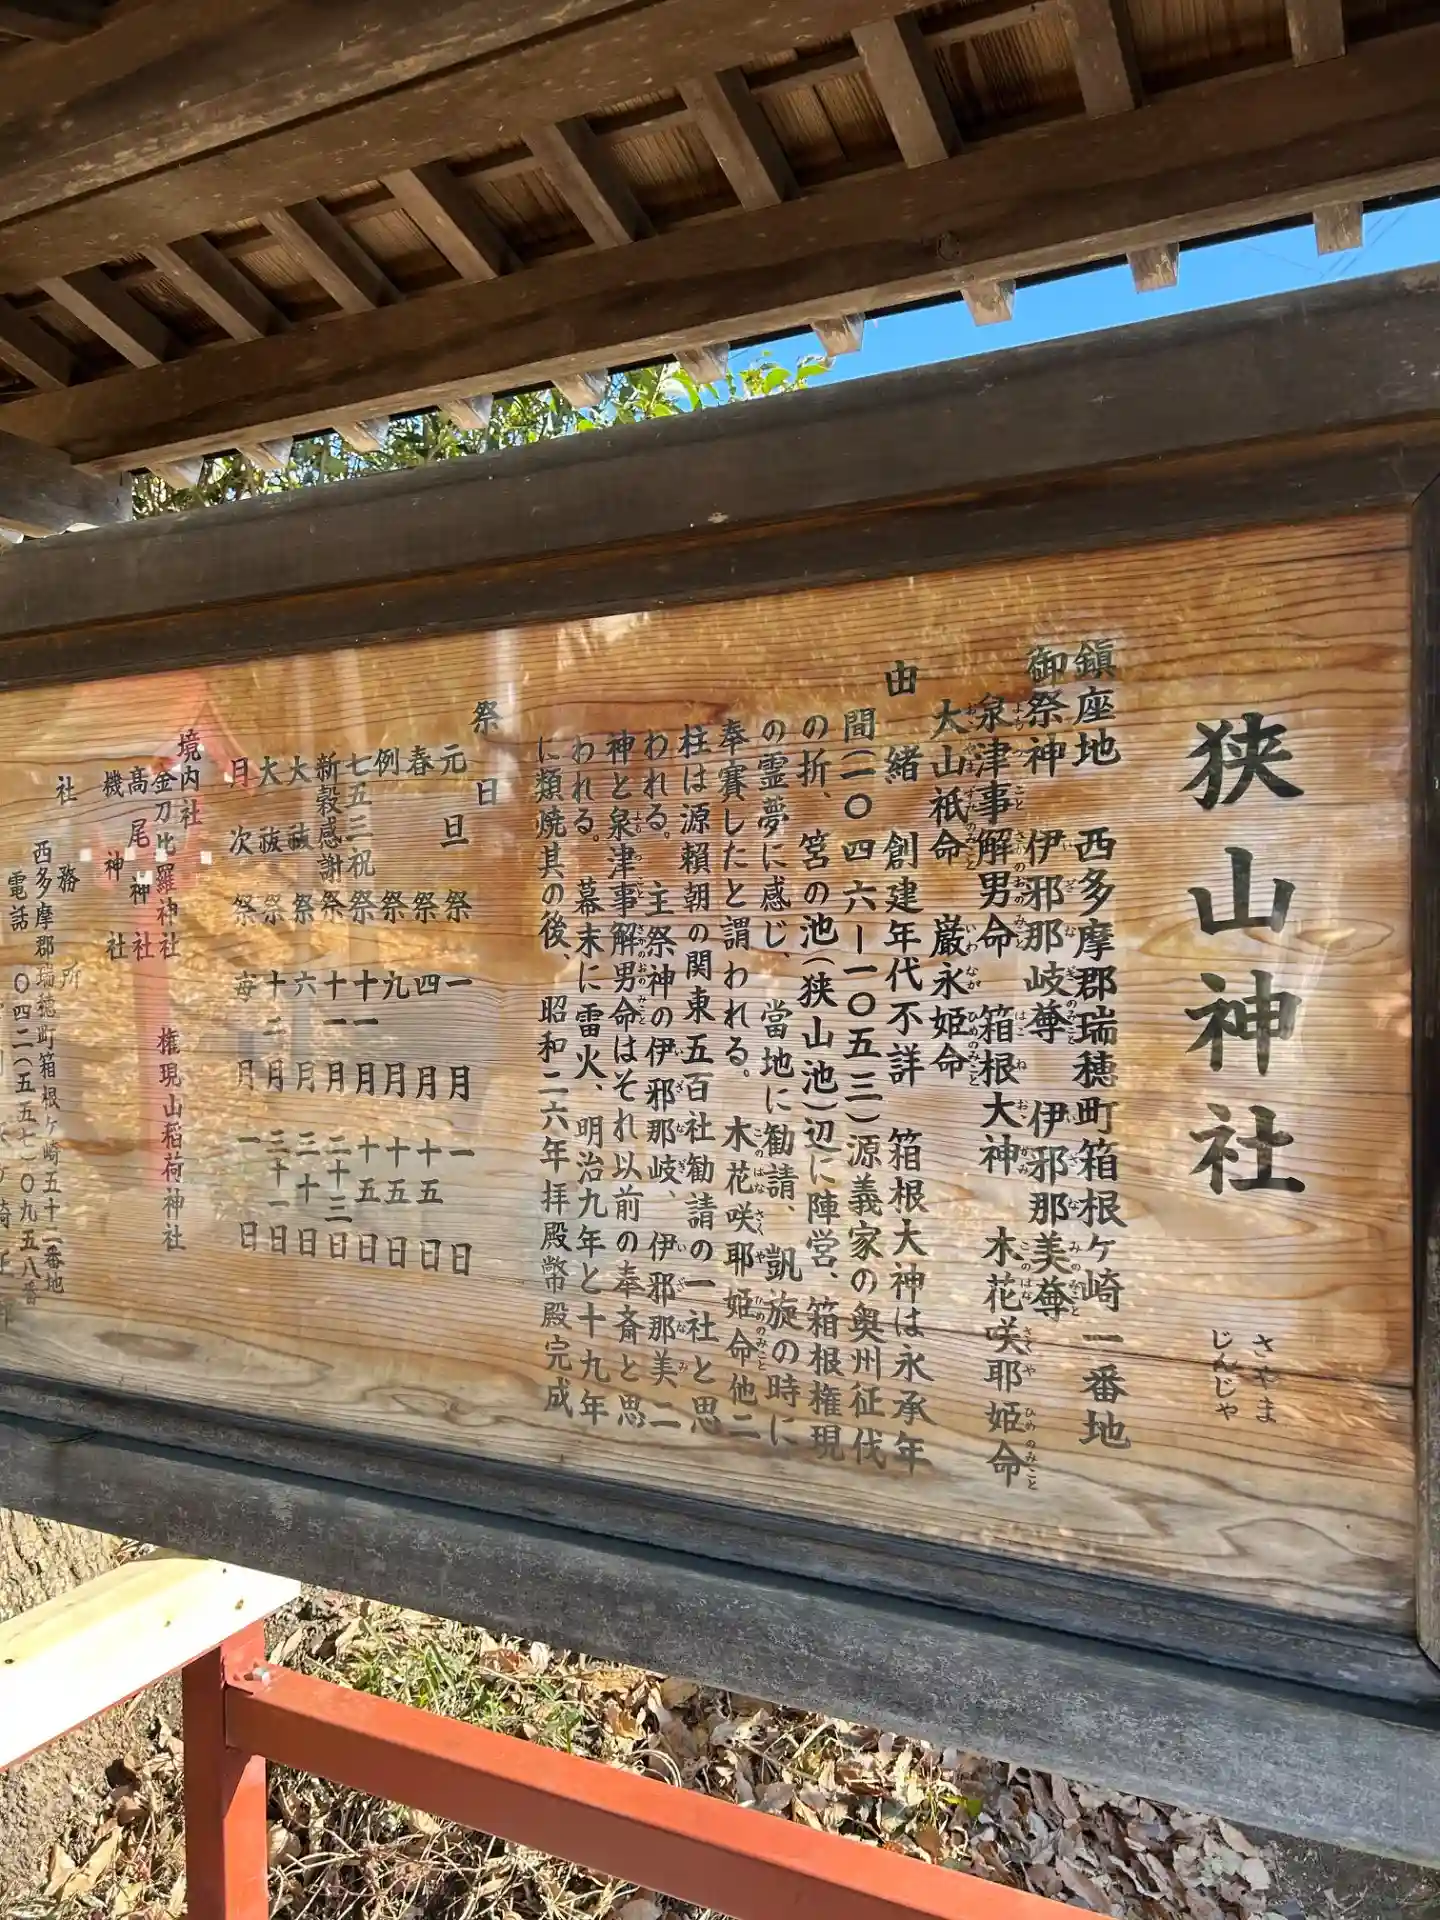 狭山神社
さやま
じんじゃ
鎮座地　西多摩郡瑞穂町箱根ヶ崎一番地
御祭神　伊邪那岐尊　伊邪那美尊
泉津事解男命　箱根大神　木花咲耶姫命
大山祇命　厳永姫命
由　緒　創建年代不詳　箱根大神は永承年
間(一〇四六ー一〇五三)源義家の奥州征伐
の折、筥の池(狭山池)辺に陣営、箱根権現
の霊夢に感じ、當地に勧請、凱旋の時に
奉賽したと謂われる。木花咲耶姫命他二
柱は源頼朝の関東五百社勧請の一社と思
われる。主祭神の伊邪那岐、伊邪那美二
神と泉津事解男命はそれ以前の奉斎と思
われる。幕末に雷火、明治九年と十九年
に類焼其の後、昭和二六年拝殿幣殿完成
祭　日
元旦祭　一月　一日
春祭　四月　十五日
例祭　九月　十五日
七五三祝祭　十一月　十五日
新穀感謝祭　十一月　二十三日
大祓祭　六月　三十日
大祓祭　十二月　三十一日
月次祭　毎月　一日
境内社
金刀比羅神社　権現山稲荷神社
高尾神社
機神社
社務所
西多摩郡瑞穂町箱根ヶ崎五十二番地
電話　〇四二(五五七)〇九五八番